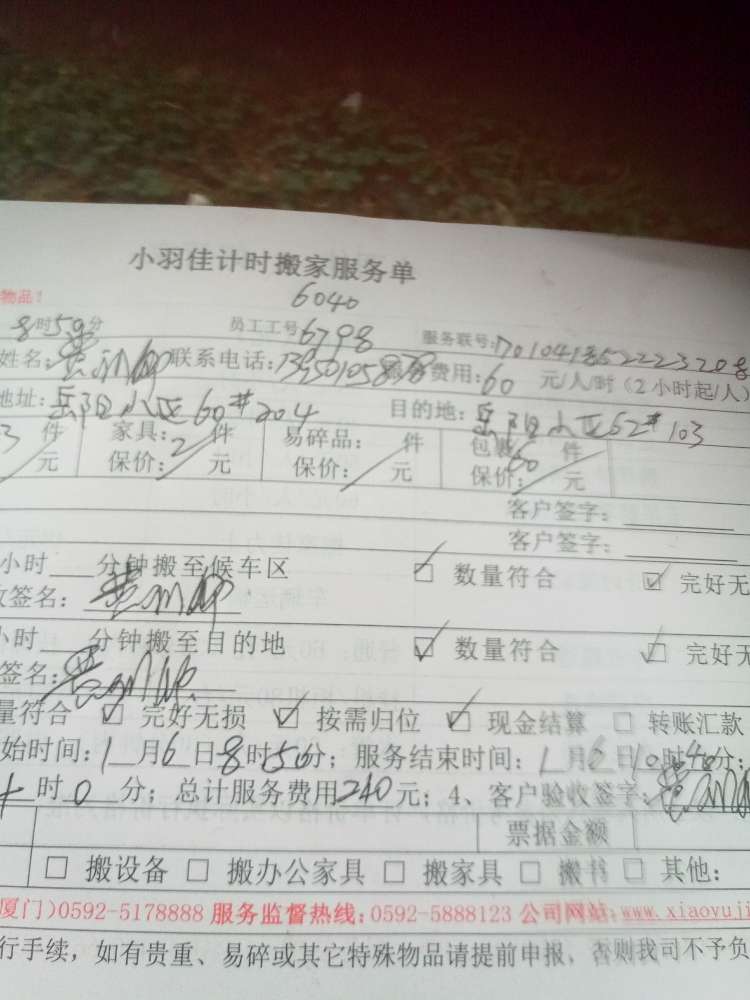 小羽佳计时搬家服务单
物品！
6040
8时59分 员工工号6798 服务联号:
姓名: 联系电话:13950105878 服务费用:60 元/人/时（2小时起/人）
地址:岳阳小区60#204 目的地:岳阳小区62#103
3 件 家具:2 件 易碎品: 件 包裹60 件
元 保价: 元 保价: 元 保价: 元
客户签字:
客户签字:
小时 分钟搬至候车区 数量符合 完好无
签名:
小时 分钟搬至目的地 数量符合 完好无
签名:
量符合 完好无损 按需归位 现金结算 转账汇款
始时间:1月6日8时50分；服务结束时间:1月6日10时40分；
时0分；总计服务费用240元；4、客户验收签字:
票据金额
搬设备 搬办公家具 搬家具 搬书 其他:
厦门)0592-5178888 服务监督热线:0592-5888123 公司网站:www.xiaoyuji
行手续，如有贵重、易碎或其它特殊物品请提前申报，否则我司不予负